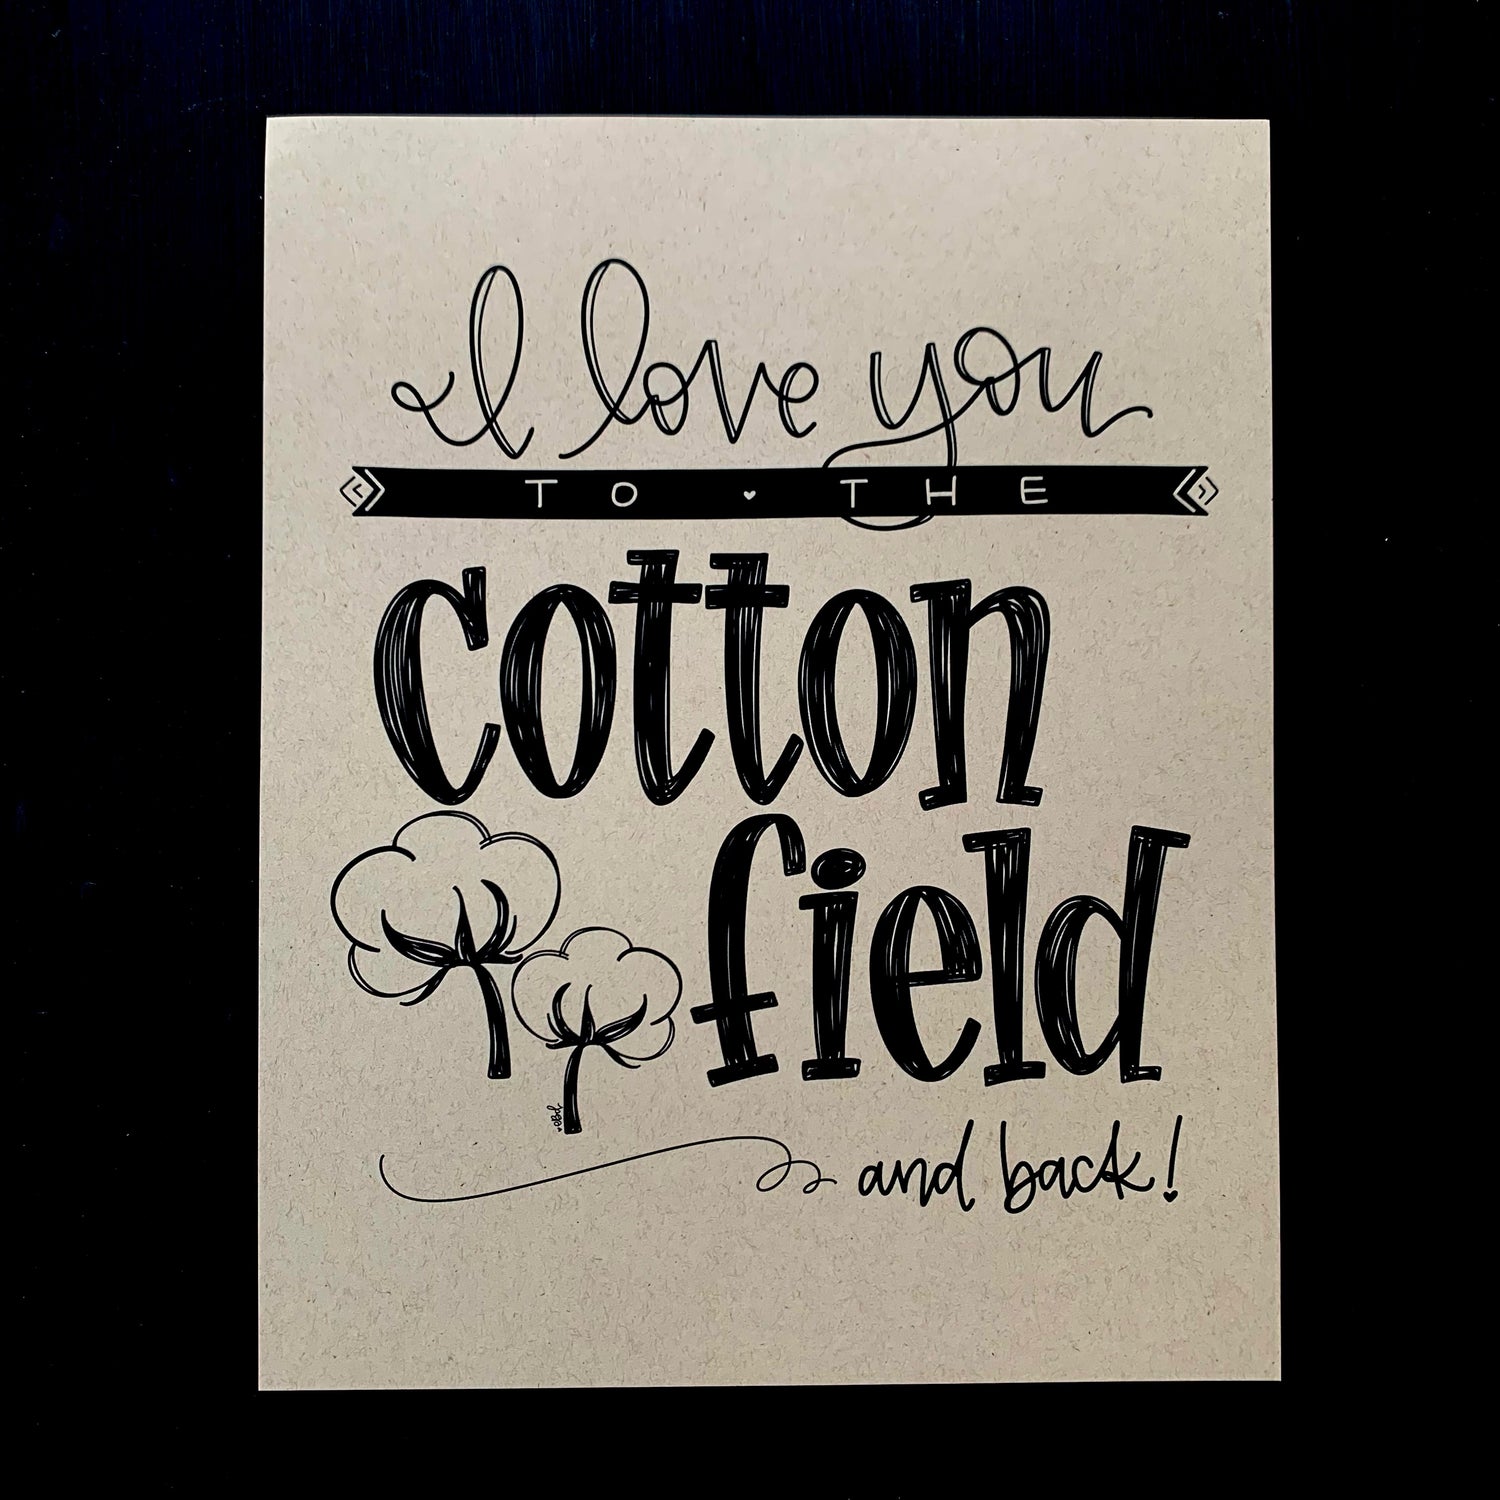 I love you
TO THE
cotton
field
ebd
and back!